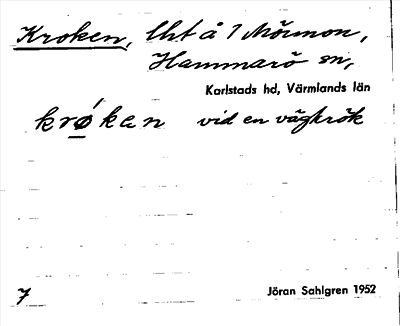 Kroken, lht å 1 Mörmon,
Hammarö sn,
Karlstads hd, Värmlands län
krǿken vid en vägkrök
7
Jöran Sahlgren 1952